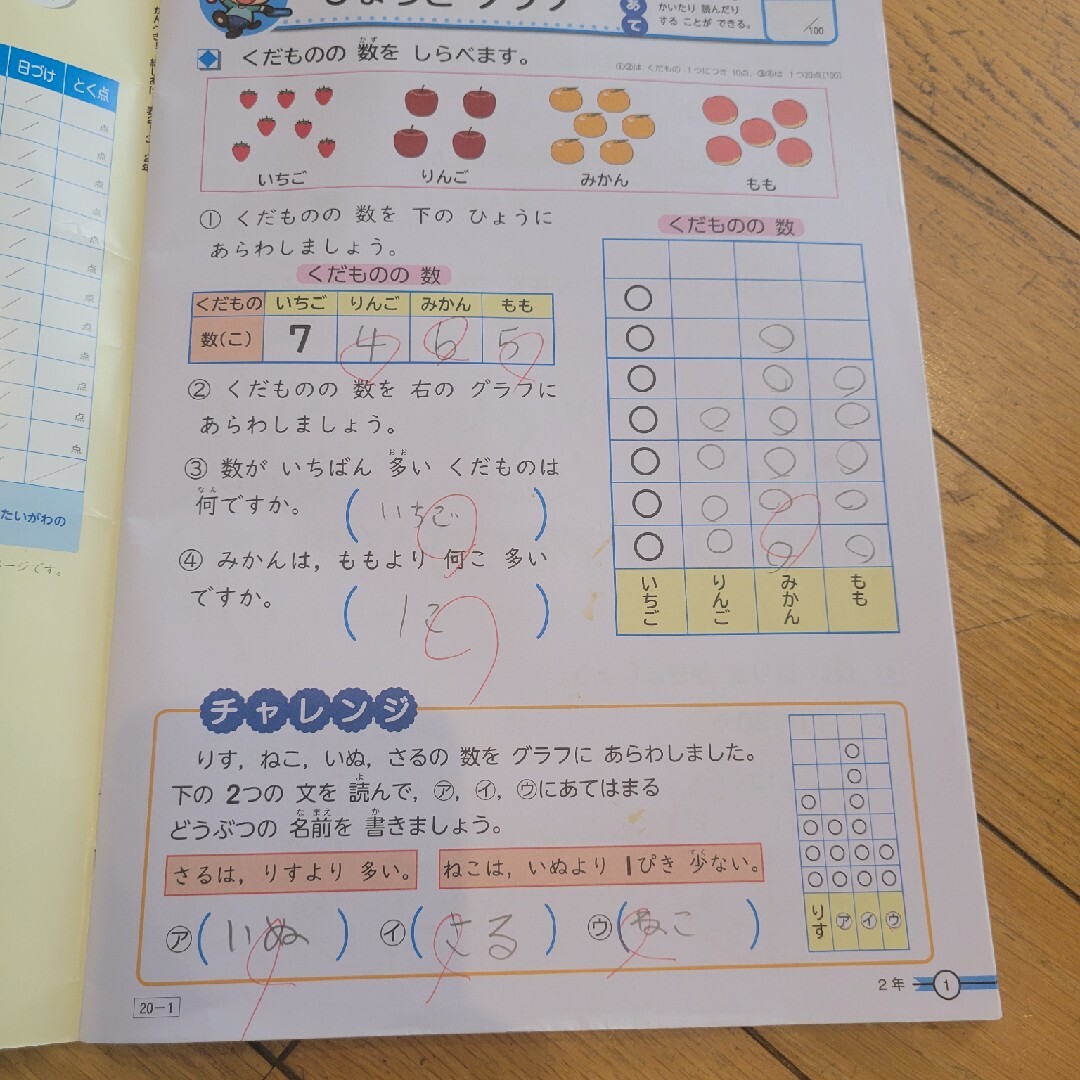 日づけ
とく点
点
点
点
点
点
点
点
点
点
点
点
点
たいがわの
ージです。
あて
かいたり 読んだり
する ことが できる。
/100
くだものの 数を しらべます。
かず
いちご
りんご
みかん
もも
① くだものの 数を 下の ひょうに
あらわしましょう。
くだものの 数
くだもの いちご りんご みかん もも
数(こ) 7 4 6 5
② くだものの 数を 右の グラフに
あらわしましょう。
③ 数が いちばん 多い くだものは
おお
何ですか。
なん
(いちご)
④ みかんは，ももより 何こ 多い
ですか。
(1こ)
くだものの 数
いちご
りんご
みかん
もも
チャレンジ
りす，ねこ，いぬ，さるの 数を グラフに あらわしました。
下の 2つの 文を 読んで，㋐，㋑，㋒にあてはまる
よ
どうぶつの 名前を 書きましょう。
なまえ
か
さるは，りすより 多い。
ねこは，いぬより 1ぴき 少ない。
すく
㋐(いぬ) ㋑(さる) ㋒(ねこ)
りす
㋐
㋑
㋒
20－1
2年 1